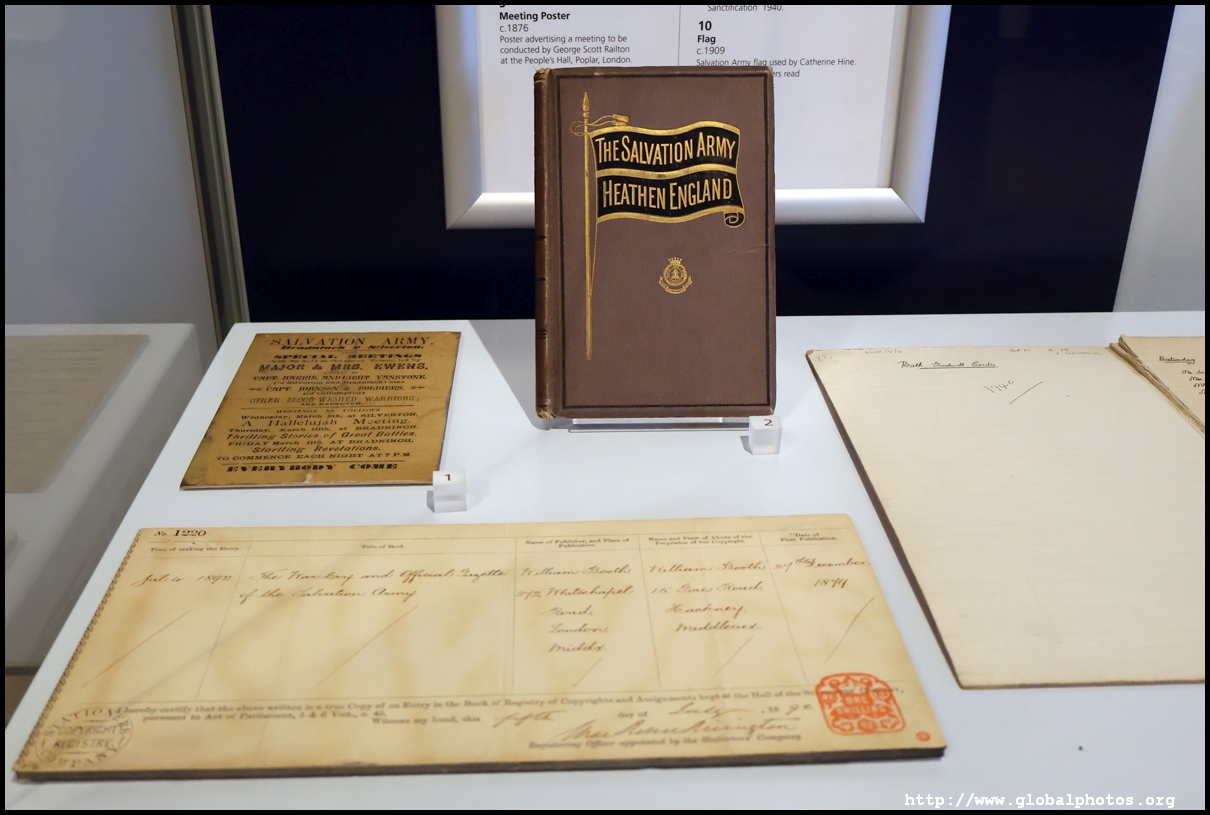 Meeting Poster
c.1876
Poster advertising a meeting to be
conducted by George Scott Railton
at the People's Hall, Poplar, London.
Sanctification" 1940.
10
Flag
c.1909
Salvation Army flag used by Catherine Hine.
read
THE SALVATION ARMY
HEATHEN ENGLAND
SALVATION ARMY,
Bradninch & Silverton.
SPECIAL MEETINGS
MAJOR & MRS. EWENS,
CAPT. HARRIS, AND LIEUT. VANSTONE,
(of Silverton and Bradninch) also
CAPT. JOHNSON & SOLDIERS,
(of Cullompton)
OTHER BLOOD-WASHED WARRIORS,
ARE EXPECTED.
MEETINGS AS FOLLOWS
Wednesday, March 9th, at SILVERTON.
A Hallelujah Meeting.
Thursday, March 10th, at BRADNINCH.
Thrilling Stories of Great Battles.
FRIDAY March 11th, AT BRADNINCH.
Startling Revelations.
TO COMMENCE EACH NIGHT AT 7 P.M.
EVERYBODY COME
1
2
1940
Saturday
No. 1220
Time of making the Entry.
Title of Book.
Name of Publisher, and Place of
Publication.
Name and Place of Abode of the
Proprietor of the Copyright.
Date of
First Publication.
July 4 1892
The War Cry and Official Gazette
of the Salvation Army
William Booth
272 Whitechapel
Road,
London,
Middx
William Booth
Gore Road,
Hackney,
Middlesex
27th December
1879
hereby certify that the above written is a true Copy of an Entry in the Book of Registry of Copyrights and Assignments kept at the Hall of the
pursuant to Act of Parliament, 5 & 6 Vict., c. 45.
Witness my hand, this fifth day of July, 1892.
Registering Officer appointed by the Stationers' Company.
COPYRIGHT
REGISTRY
ONE
SHILLING
http://www.globalphotos.org